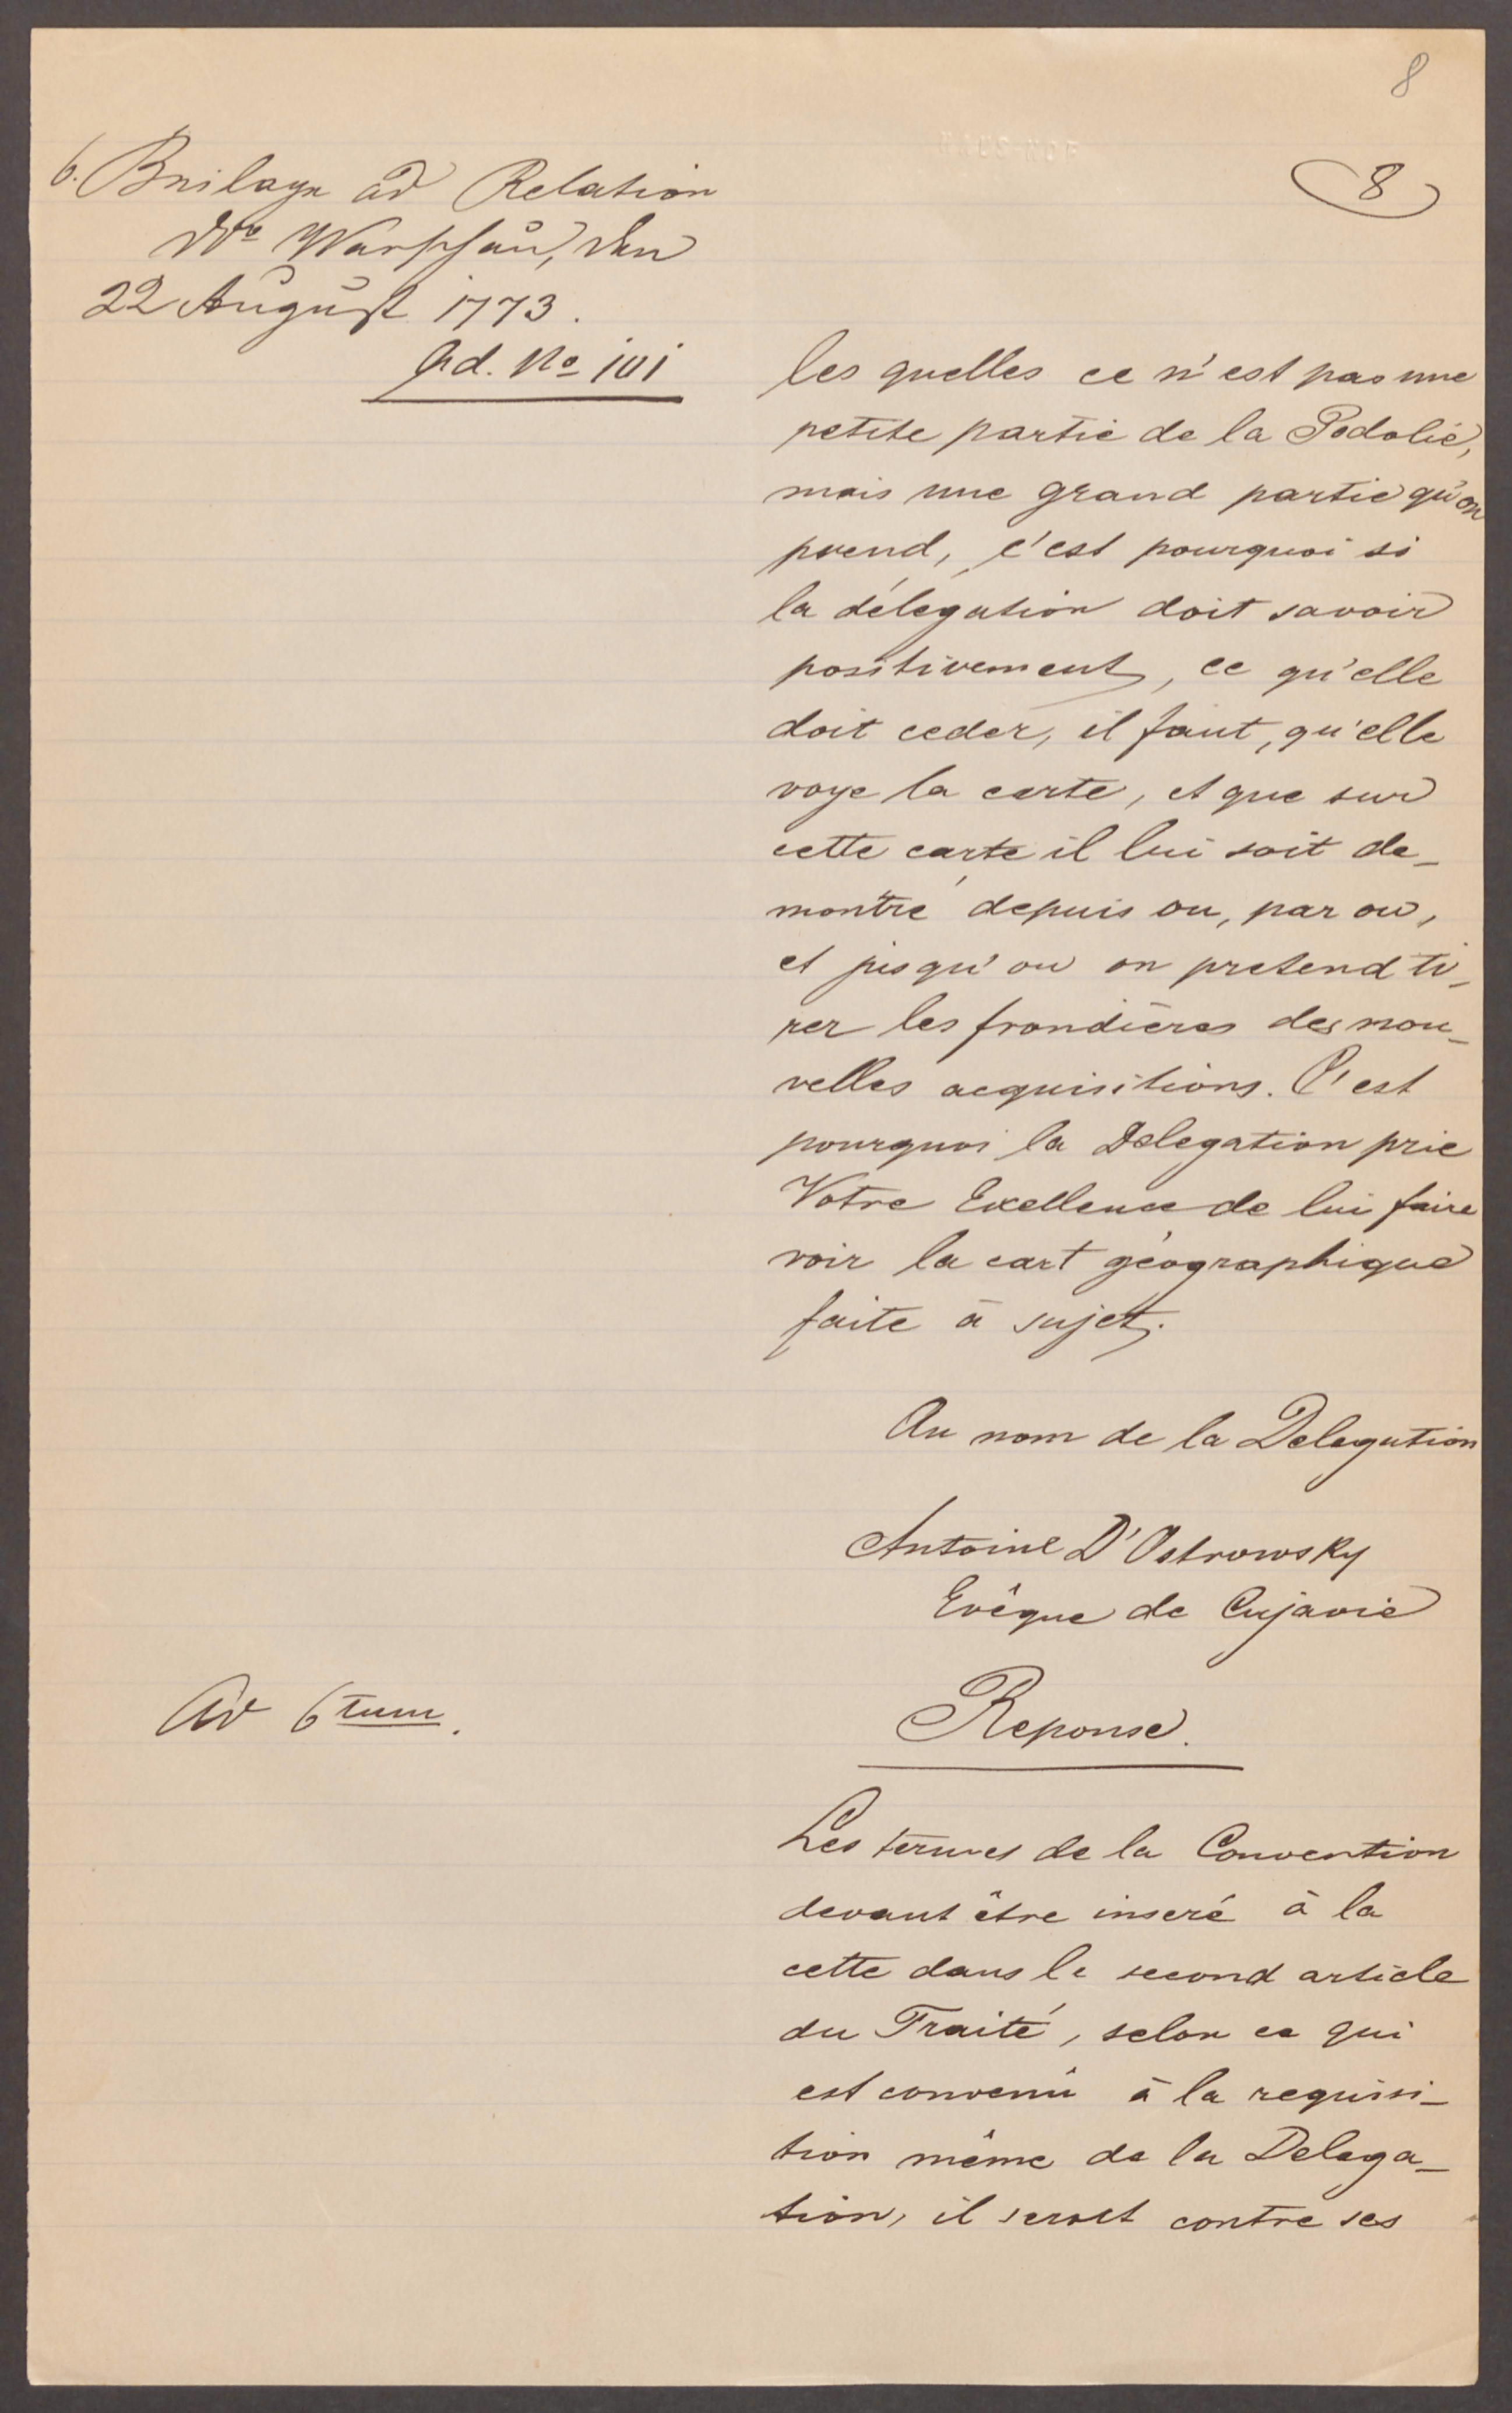 8
8
6. Beilage ad Relation
Dto Warschau, den
22 August 1773.
Ad. No 101
les quelles ce n'est pas une
petite partie de la Podolie,
mais une grand partie qu'on
prend, c'est pourquoi si
la délegation doit savoir
positivement, ce qu'elle
doit ceder, il faut, qu'elle
voye la carte, et que sur
cette carte il lui soit de_
montré depuis ou, par ou,
et jusqu'ou on pretend ti_
rer les frondières des nou_
velles acquisitions. C'est
pourquoi la Delegation prie
Votre Exellence de lui faire
voir la cart géographique
faite à sujet.
Au nom de la Delegation
Antoine D'Ostrowsky
Evêque de Cujavie
Ad 6tum.
Reponse.
Les termes de la Convention
devant être inseré à la
cette dans le second article
du Traité, selon ce qui
est convenu à la requisi_
tion même de la Delega_
tion, il seroit contre ses